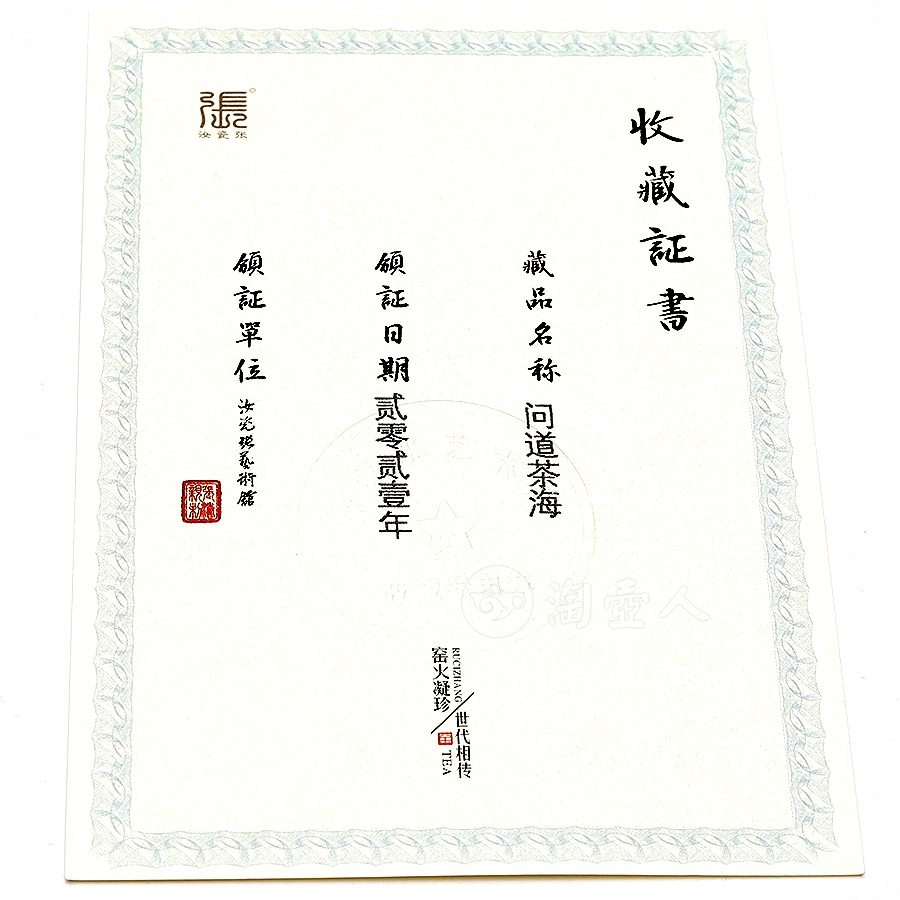 張
汝瓷张
收藏証書
藏品名称 问道茶海
領証日期 贰零贰壹年
領証單位 汝瓷張藝術館
RUCIZHANG
窑火凝珍
世代相传
TEA
淘壶人